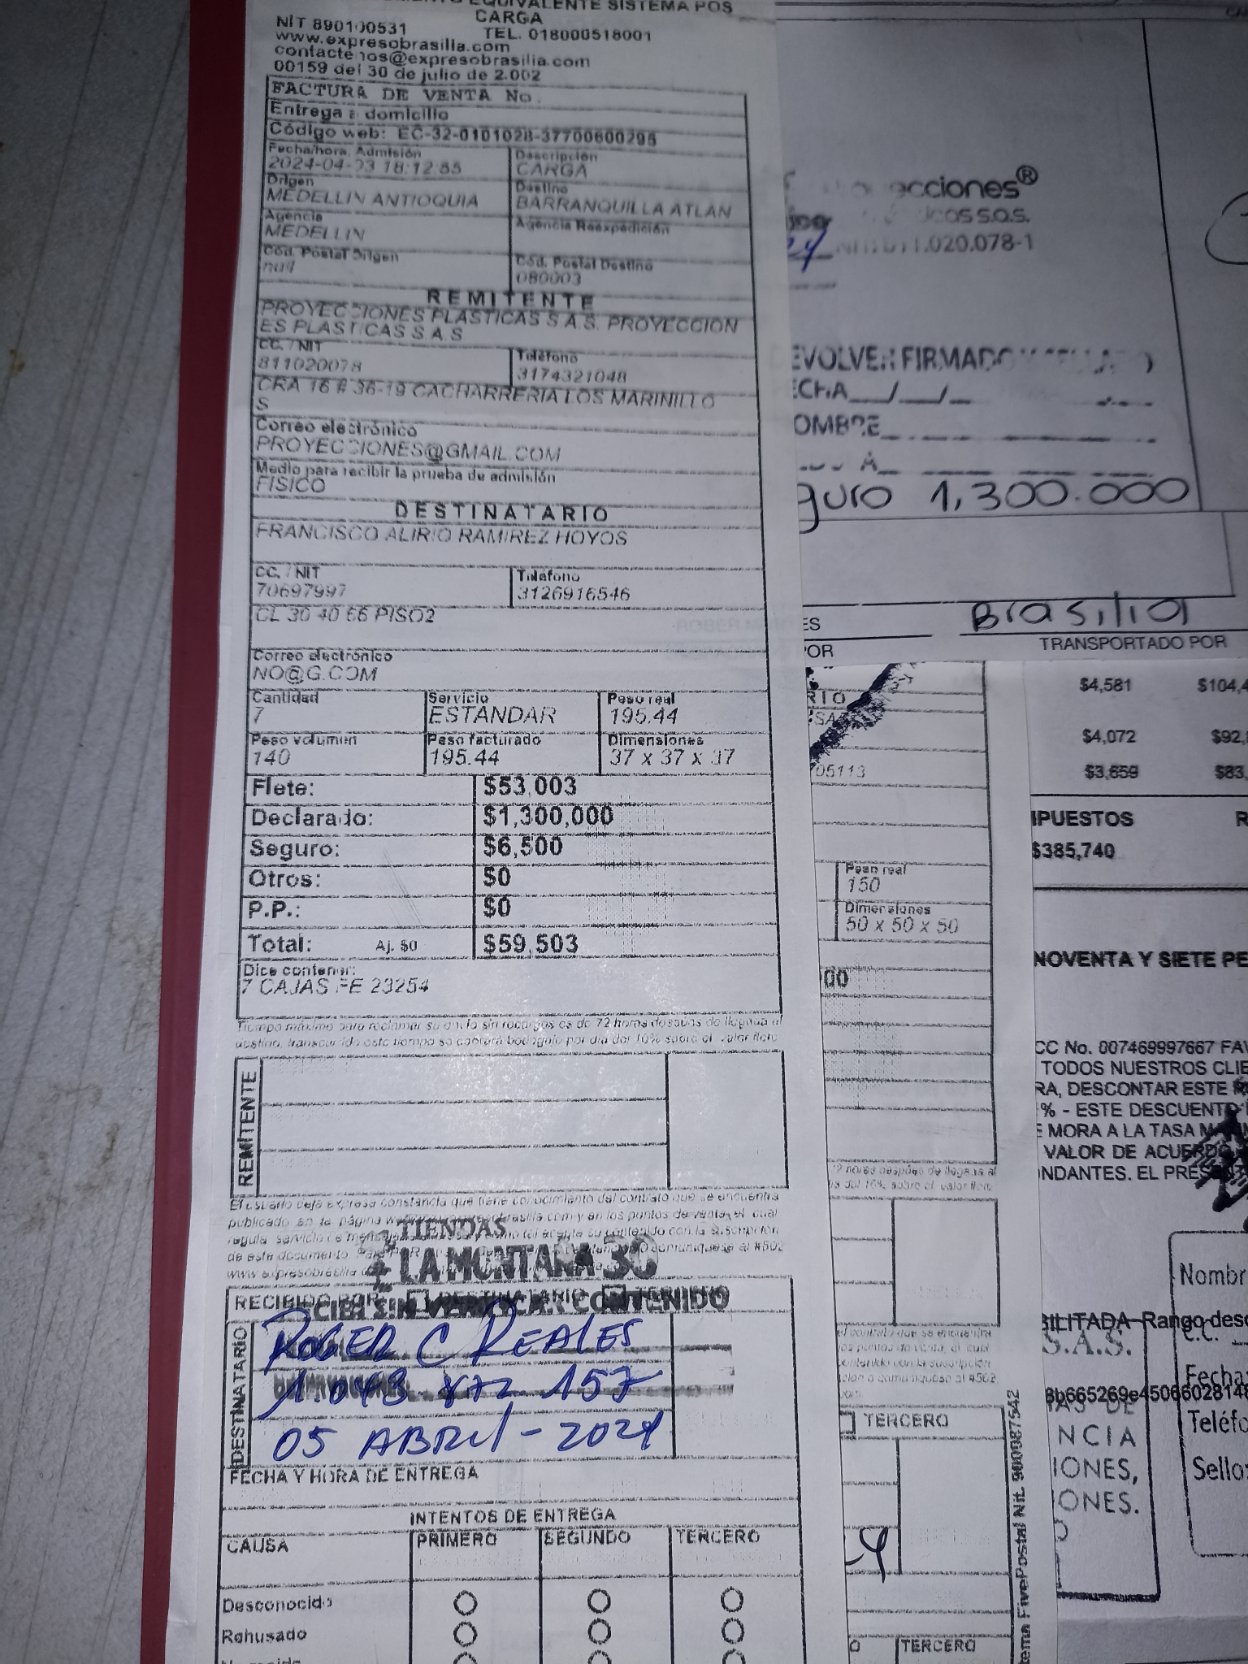 EQUIVALENTE SISTEMA POS
CARGA
NIT 890100531 TEL. 018000518001
www.expresobrasilia.com
contactenos@expresobrasilia.com
00159 del 30 de julio de 2.002
FACTURA DE VENTA No.
Entrega a domicilio
Código web: EC-32-0101028-37700600295
Fecha/hora. Admisión Descripción
2024-04-03 18:12:55 CARGA
Origen Destino
MEDELLIN ANTIOQUIA BARRANQUILLA ATLAN
Agencia Agencia Reexpedición
MEDELLIN
Cód. Postal Origen Cód. Postal Destino
null 080003
REMITENTE
PROYECCIONES PLASTICAS S A S. PROYECCION
ES PLASTICAS S A S
CC. / NIT Teléfono
811020078 3174321048
CRA 16 # 36-19 CACHARRERIA LOS MARINILLO
S
Correo electrónico
PROYECCIONES@GMAIL.COM
Medio para recibir la prueba de admisión
FISICO
DESTINATARIO
FRANCISCO ALIRIO RAMIREZ HOYOS
CC. / NIT Teléfono
70697997 3126916546
CL 30 40 66 PISO2
Correo electrónico
NO@G.COM
Cantidad Servicio Peso real
7 ESTANDAR 195.44
Peso volumen Peso facturado Dimensiones
140 195.44 37 x 37 x 37
Flete: $53,003
Declarado: $1,300,000
Seguro: $6,500
Otros: $0
P.P.: $0
Total: Aj. $0 $59,503
Dice contener:
7 CAJAS FE 23254
Tiempo máximo para reclamar su envío sin recargos es de 72 horas después de llegada al
destino, transcurrido este tiempo se cobrará bodegaje por día del 10% sobre el valor flete
REMITENTE
El usuario deja expresa constancia que tiene conocimiento del contrato que se encuentra
publicado en la página
TIENDAS
LA MONTAÑA 30
RECIBIDO POR:
RECIBI SIN VERIFICAR CONTENIDO
DESTINATARIO
ROGER C REALES
05 ABRIL - 2024
FECHA Y HORA DE ENTREGA
INTENTOS DE ENTREGA
CAUSA PRIMERO SEGUNDO TERCERO
Desconocido
Rehusado
ecciones®
icos s.a.s.
.020.078-1
EVOLVER FIRMADO
ECHA__/__/__
OMBRE
guro 1,300.000
ES
Brasilia
POR TRANSPORTADO POR
$4,581 $104,4
$4,072 $92,
05113
$3,659 $83,
IPUESTOS R
$385,740
Peso real
150
Dimensiones
50 x 50 x 50
NOVENTA Y SIETE PE
00
CC No. 007469997667 FA
TODOS NUESTROS CLIE
RA, DESCONTAR ESTE
% - ESTE DESCUENTO
E MORA A LA TASA
VALOR DE ACUERDO
NDANTES. EL PRES
Nombr
BILITADA Rango desc
S.A.S. C.C.
Fecha
8b665269e4506602814
Teléfo
TERCERO
NCIA
IONES,
ONES.
Sello:
tema FivePostal Nit. 900087542
O TERCERO